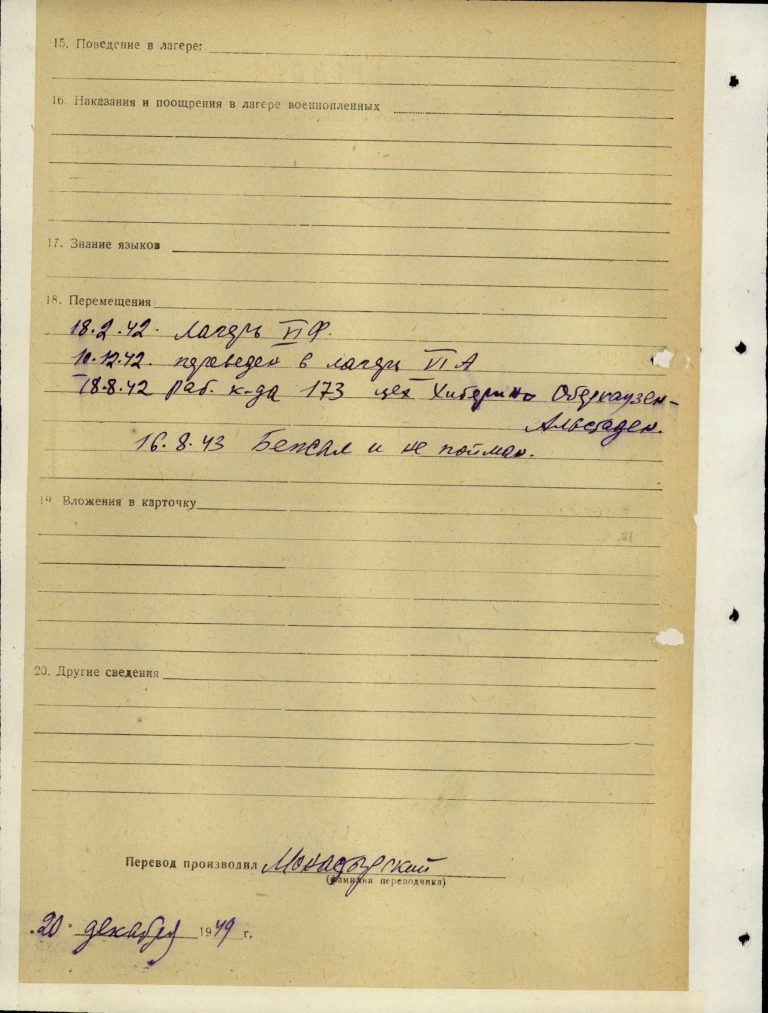 15. Поведение в лагере:
16. Наказания и поощрения в лагере военнопленных
17. Знание языков
18. Перемещения
18.2.42. Лагерь VI Ф.
10.12.42. переведен в лагерь VI А
18.8.42 раб. к-да 173 цех Оберхаузен-
Альстаден.
16.8.43 Бежал и не пойман.
19 Вложения в карточку
20. Другие сведения
Перевод производил Монастырский
(фамилия переводчика)
20 декабря 1949 г.